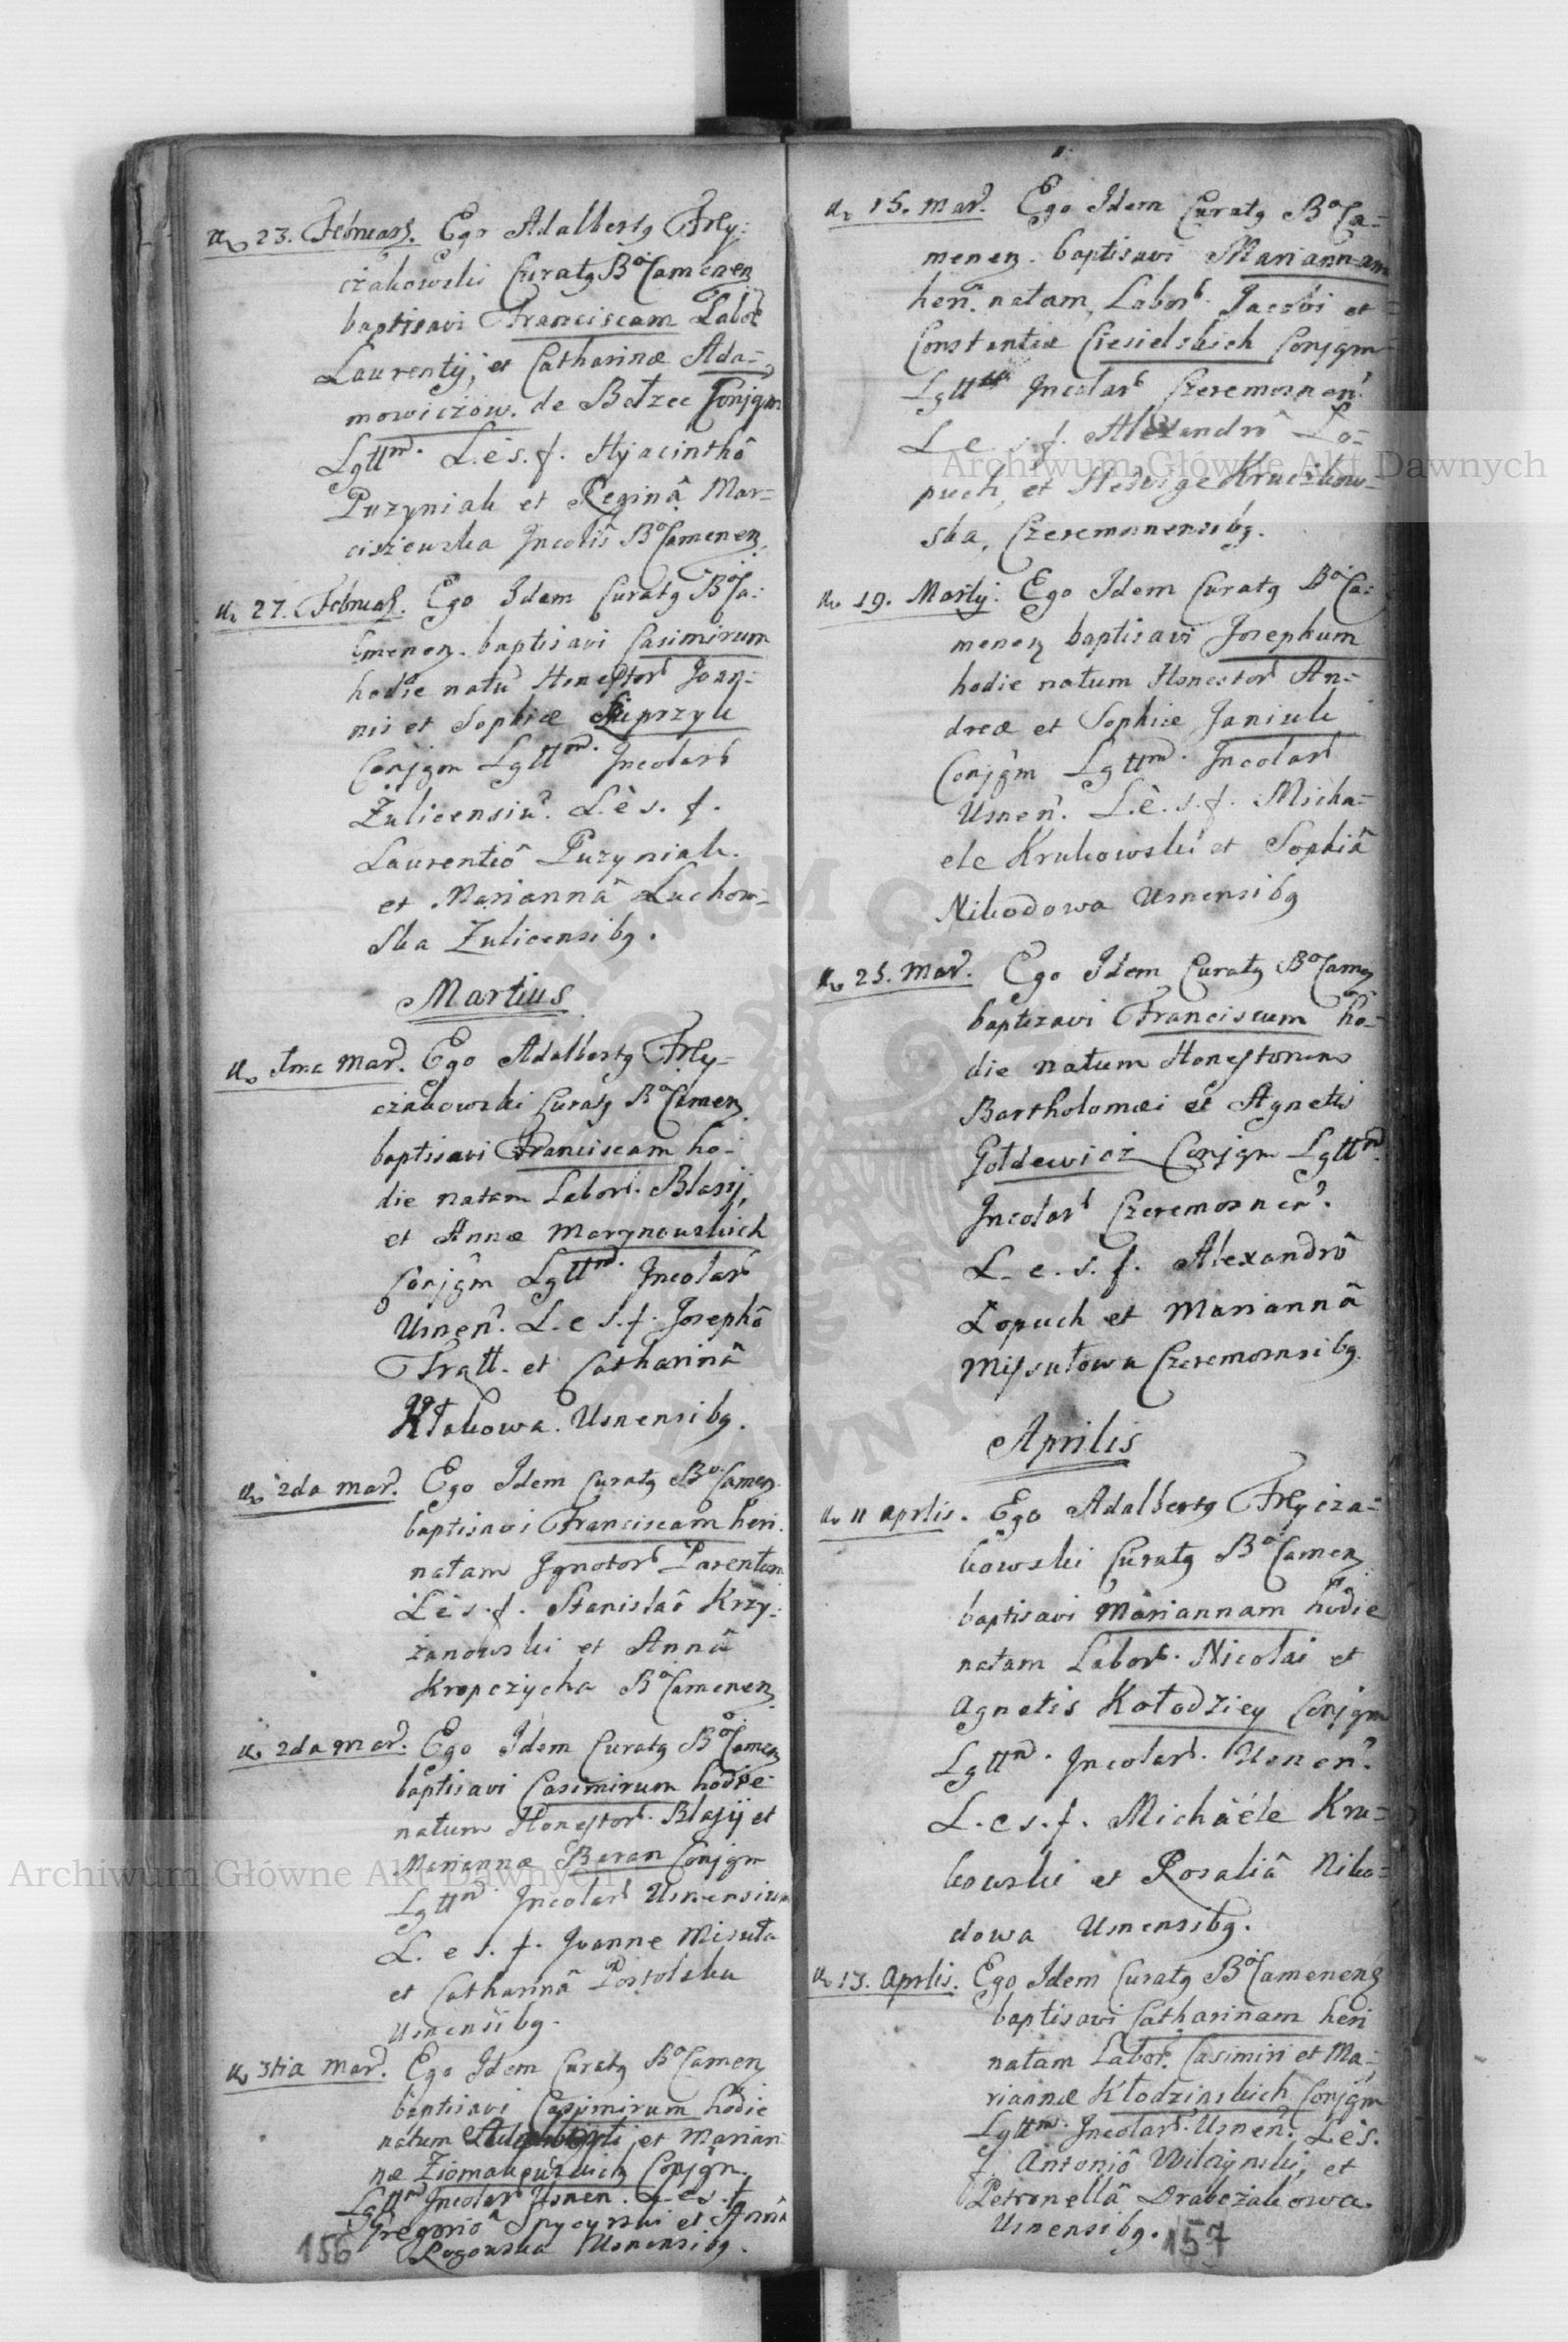 23. Februarÿ. Ego Adalbertq Fry:
czakowski Curatq BoCamenen
baptisavi Franciscam Labor
Laurentij, et Catharinæ Ada=
mowiczow. de Bełzec Conjgm
Lgttm. L. e s. f. Hyacinthô
Puzyniak et Reginâ Mar=
ciszewska Incolis BoCamenen
27. Februar. Ego Idem Curatq BoCa:
menen. baptisavi Casimirum
hodie natũ Honestor Joan=
nis et Sophiæ
Conjgm Lgttm. Incolar
Żulicensiu. L. e s. f.
Laurentiô Puzyniak.
et Mariannâ Luchow=
ska Żulicensibq.
Martius
1ma Mar. Ego Adalbertq Fry=
czakowski Curatq BoCamen
baptisavi Franciscam ho=
die natam Labor. Blasij,
et Annæ Marynowskich
Conjgm Lgttm. Incolar
Usnen. L. e s. f. Josephô
et Catharinâ
Kłakowa. Usnensibq.
2da Mar. Ego Idem Curatq BoCamen
baptisavi Franciscam heri
natam Ignotor Parentum
L. e s. f. Stanislaô Krzy:
żanowski et Annâ
Kropczycha BoCamenen
2da Mar. Ego Idem Curatq BoCamen
baptisavi Casimirum hodie
natum Honestor. Blasij et
Mariannæ Baran Conjgm
Lgttm. Incolar Usnensium
L. e s. f. Joanne Misuła
et Catharinâ Postolska
Usnensibq.
3tia Mar. Ego Idem Curatq BoCamen
baptisavi Casimirum hodie
natum et Marian=
næ Conjgm.
Lgttm Incolar Usnen. L. e s. f.
Gregoriô et Annâ
Rogowska Usnensibq.
156
15. Mar. Ego Idem Curatq BoCa=
menen. baptisavi Mariannam
heri natam, Labor. Jacobi et
Constantiæ Ciesielskich Conjgm
Lgttm Incolar Czeremosnen.
L. e. s. f. Alexandrô Ło=
puch, et Hedvige Kruczkow=
ska, Czeremosnensibq.
19. Martij. Ego Idem Curatq BoCa:
menen baptisavi Josephum
hodie natum Honestor An=
dreæ et Sophiæ Janiuk
Conjgm Lgttm. Incolar
Usnen. L. e. s. f. Micha=
ele Krukowski et Sophiâ
Nikodowa Usnensibq
25. Mar. Ego Idem Curatq BoCamen
baptizavi Franciscum ho=
die natum Honestorum
Bartholomæi et Agnetis
Gołdewicz Conjgm Lgttm.
Incolar Czeremosnen.
L. e. s. f. Alexandrô
Łopuch et Mariannâ
Misułowa Czeremosnsibq.
Aprilis
11 Aprlis. Ego Adalbertq Frycza=
kowski Curatq BoCamen
baptisavi Mariannam hodie
natam Labor. Nicolai et
Agnetis Kołodziey Conjgm
Lgttm. Incolar. Usnen.
L. e s. f. Michäéle Kru=
kowski et Rosaliâ Niko=
dowa Usnensibq.
13. Aprlis. Ego Idem Curatq BoCamenens
baptisavi Catharinam heri
natam Labor. Casimiri et Ma;
riannæ Kłodzinskich Conjgm
Lgttm. Incolar. Usnen. L. e s.
f. Antoniô Wilczynski, et
Petronellâ Drabczakowa.
Usnensibq.
157
Archiwum Główne Akt Dawnych
Archiwum Główne Akt Dawnych